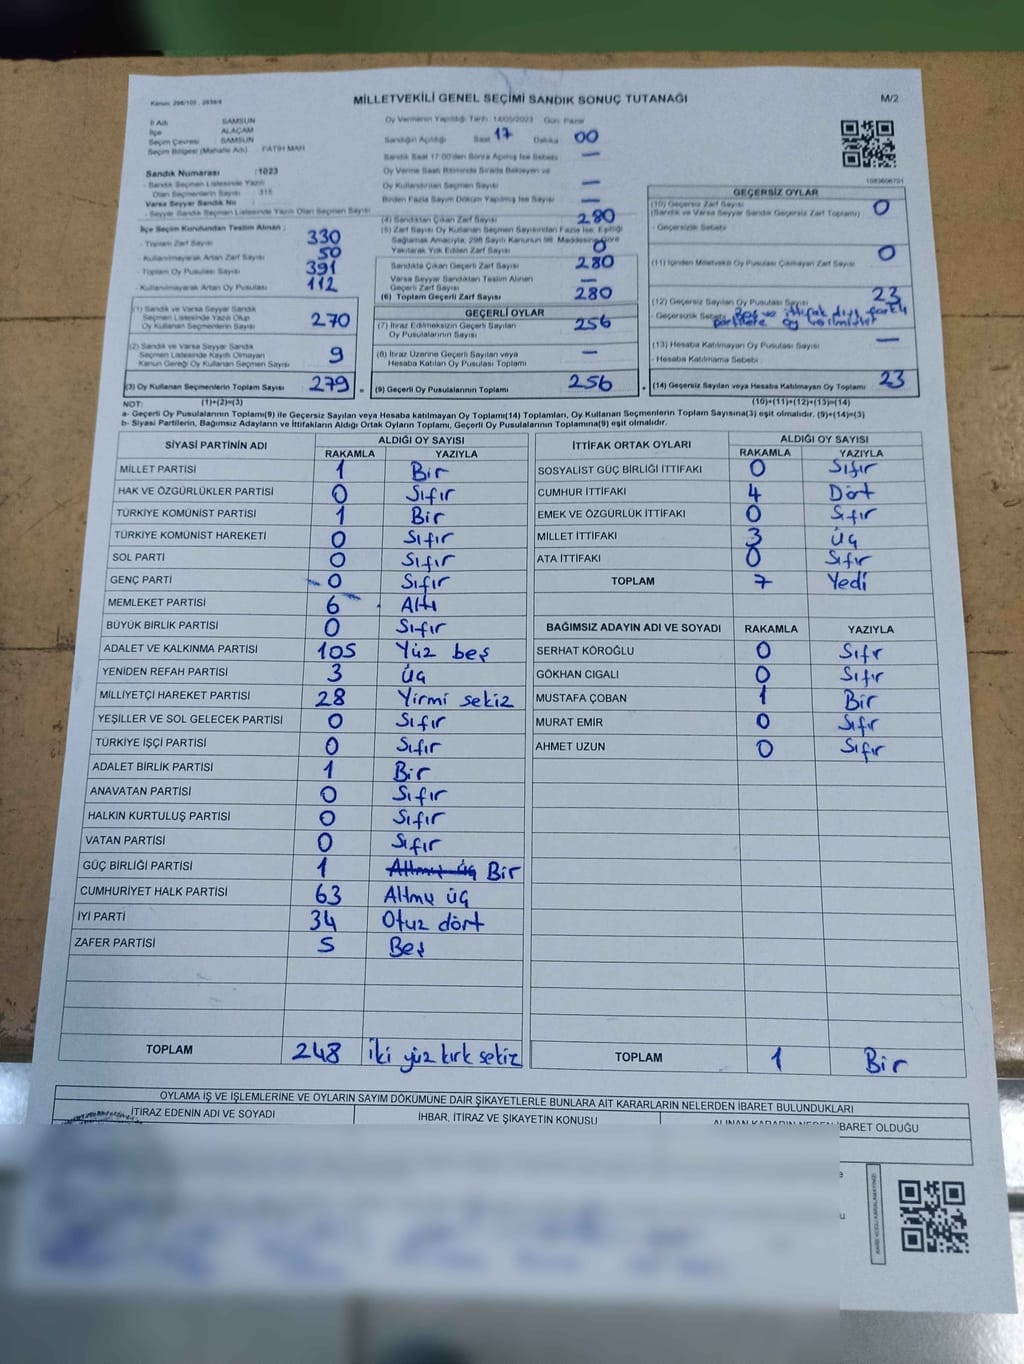 Kanun: 298/105 , 2839/4
MİLLETVEKİLİ GENEL SEÇİMİ SANDIK SONUÇ TUTANAĞI
M/2
İl Adı SAMSUN
İlçe ALAÇAM
Seçim Çevresi SAMSUN
Seçim Bölgesi (Mahalle Adı) FATİH MAH
Sandık Numarası :1023
- Sandık Seçmen Listesinde Yazılı
Olan Seçmenlerin Sayısı 315
Varsa Seyyar Sandık No
- Seyyar Sandık Seçmen Listesinde Yazılı Olan Seçmen Sayısı
İlçe Seçim Kurulundan Teslim Alınan ;
- Toplam Zarf Sayısı 330
- Kullanılmayarak Artan Zarf Sayısı 50
- Toplam Oy Pusulası Sayısı 391
- Kullanılmayarak Artan Oy Pusulası 112
(1) Sandık ve Varsa Seyyar Sandık
Seçmen Listesinde Yazılı Olup
Oy Kullanan Seçmenlerin Sayısı 270
(2) Sandık ve Varsa Seyyar Sandık
Seçmen Listesinde Kayıtlı Olmayan
Kanun Gereği Oy Kullanan Seçmen Sayısı 9
(3) Oy Kullanan Seçmenlerin Toplam Sayısı 279
(1)+(2)=(3)
Oy Vermenin Yapıldığı Tarih : 14/05/2023 Gün: Pazar
Sandığın Açıldığı Saat 17 Dakika 00
Sandık Saat 17:00'den Sonra Açılmış İse Sebebi —
Oy Verme Saati Bitiminde Sırada Bekleyen ve
Oy Kullandırılan Seçmen Sayısı —
Birden Fazla Sayım Döküm Yapılmış İse Sayısı —
(4) Sandıktan Çıkan Zarf Sayısı 280
(5) Zarf Sayısı Oy Kullanan Seçmen Sayısından Fazla İse, Eşitliği
Sağlamak Amacıyla, 298 Sayılı Kanunun 98. Maddesine Göre
Yakılarak Yok Edilen Zarf Sayısı 0
Sandıkta Çıkan Geçerli Zarf Sayısı 280
Varsa Seyyar Sandıktan Teslim Alınan
Geçerli Zarf Sayısı —
(6) Toplam Geçerli Zarf Sayısı 280
GEÇERLİ OYLAR
(7) İtiraz Edilmeksizin Geçerli Sayılan
Oy Pusulalarının Sayısı 256
(8) İtiraz Üzerine Geçerli Sayılan veya
Hesaba Katılan Oy Pusulası Toplamı —
= (9) Geçerli Oy Pusulalarının Toplamı 256
1083606701
GEÇERSİZ OYLAR
(10) Geçersiz Zarf Sayısı 0
(Sandık ve Varsa Seyyar Sandık Geçersiz Zarf Toplamı)
- Geçersizlik Sebebi
(11) İçinden Milletvekili Oy Pusulası Çıkmayan Zarf Sayısı 0
(12) Geçersiz Sayılan Oy Pusulası Sayısı 23
- Geçersizlik Sebebi Boş ve ittifak dışı farklı
partilere oy verilmiştir
(13) Hesaba Katılmayan Oy Pusulası Sayısı —
- Hesaba Katılmama Sebebi :
+ (14) Geçersiz Sayılan veya Hesaba Katılmayan Oy Toplamı 23
(10)+(11)+(12)+(13)=(14)
NOT:
a- Geçerli Oy Pusulalarının Toplamı(9) ile Geçersiz Sayılan veya Hesaba katılmayan Oy Toplamı(14) Toplamları, Oy Kullanan Seçmenlerin Toplam Sayısına(3) eşit olmalıdır. (9)+(14)=(3)
b- Siyasi Partilerin, Bağımsız Adayların ve İttifakların Aldığı Ortak Oyların Toplamı, Geçerli Oy Pusulalarının Toplamına(9) eşit olmalıdır.
SİYASİ PARTİNİN ADI ALDIĞI OY SAYISI
RAKAMLA YAZIYLA
MİLLET PARTİSİ 1 Bir
HAK VE ÖZGÜRLÜKLER PARTİSİ 0 Sıfır
TÜRKİYE KOMÜNİST PARTİSİ 1 Bir
TÜRKİYE KOMÜNİST HAREKETİ 0 Sıfır
SOL PARTİ 0 Sıfır
GENÇ PARTİ 0 Sıfır
MEMLEKET PARTİSİ 6 Altı
BÜYÜK BİRLİK PARTİSİ 0 Sıfır
ADALET VE KALKINMA PARTİSİ 105 Yüz beş
YENİDEN REFAH PARTİSİ 3 üç
MİLLİYETÇİ HAREKET PARTİSİ 28 Yirmi sekiz
YEŞİLLER VE SOL GELECEK PARTİSİ 0 Sıfır
TÜRKİYE İŞÇİ PARTİSİ 0 Sıfır
ADALET BİRLİK PARTİSİ 1 Bir
ANAVATAN PARTİSİ 0 Sıfır
HALKIN KURTULUŞ PARTİSİ 0 Sıfır
VATAN PARTİSİ 0 Sıfır
GÜÇ BİRLİĞİ PARTİSİ 1 Altmış üç Bir
CUMHURİYET HALK PARTİSİ 63 Altmış üç
İYİ PARTİ 34 Otuz dört
ZAFER PARTİSİ 5 Beş
TOPLAM 248 iki yüz kırk sekiz
İTTİFAK ORTAK OYLARI ALDIĞI OY SAYISI
RAKAMLA YAZIYLA
SOSYALİST GÜÇ BİRLİĞİ İTTİFAKI 0 Sıfır
CUMHUR İTTİFAKI 4 Dört
EMEK VE ÖZGÜRLÜK İTTİFAKI 0 Sıfır
MİLLET İTTİFAKI 3 üç
ATA İTTİFAKI 0 Sıfır
TOPLAM 7 Yedi
BAĞIMSIZ ADAYIN ADI VE SOYADI RAKAMLA YAZIYLA
SERHAT KÖROĞLU 0 Sıfr
GÖKHAN CIGALI 0 Sıfır
MUSTAFA ÇOBAN 1 Bir
MURAT EMİR 0 Sıfır
AHMET UZUN 0 Sıfır
TOPLAM 1 Bir
OYLAMA İŞ VE İŞLEMLERİNE VE OYLARIN SAYIM DÖKÜMÜNE DAİR ŞİKAYETLERLE BUNLARA AİT KARARLARIN NELERDEN İBARET BULUNDUKLARI
İTİRAZ EDENİN ADI VE SOYADI
İHBAR, İTİRAZ VE ŞİKAYETİN KONUSU
ALINAN KARARIN NEDEN İBARET OLDUĞU